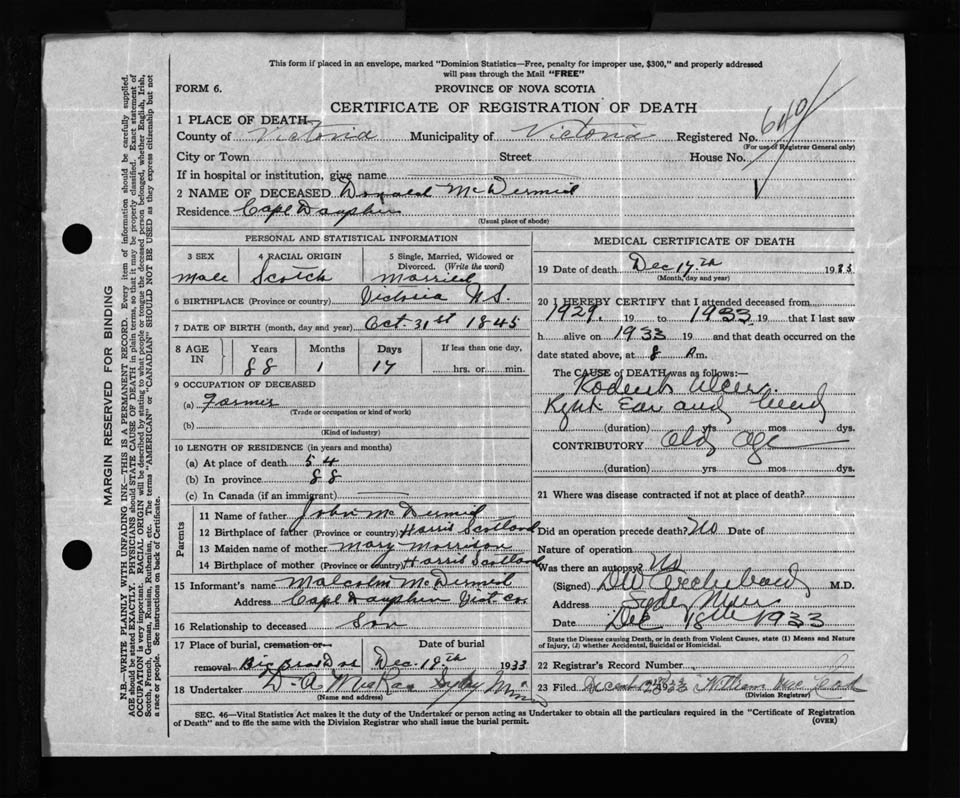 This form if placed in an envelope, marked "Dominion Statistics—Free, penalty for improper use, $300," and properly addressed
will pass through the Mail "FREE"
FORM 6.
PROVINCE OF NOVA SCOTIA
CERTIFICATE OF REGISTRATION OF DEATH
1 PLACE OF DEATH
County of Victoria Municipality of Victoria Registered No.
(For use of Registrar General only)
City or Town Street House No.
If in hospital or institution, give name
2 NAME OF DECEASED Donald McDermid
Residence Cape Dauphin
(Usual place of abode)
PERSONAL AND STATISTICAL INFORMATION
3 SEX 4 RACIAL ORIGIN 5 Single, Married, Widowed or Divorced. (Write the word)
Male Scotch Married
6 BIRTHPLACE (Province or country) Victoria N.S.
7 DATE OF BIRTH (month, day and year) Oct. 31st 1845
8 AGE IN Years Months Days If less than one day,
88 1 17 hrs. or min.
9 OCCUPATION OF DECEASED
(a) Farmer
(Trade or occupation or kind of work)
(b)
(Kind of industry)
10 LENGTH OF RESIDENCE (in years and months)
(a) At place of death 54
(b) In province 88
(c) In Canada (if an immigrant)
Parents
11 Name of father John McDermid
12 Birthplace of father (Province or country) Harris Scotland
13 Maiden name of mother Mary Morrison
14 Birthplace of mother (Province or country) Harris Scotland
15 Informant's name Malcolm McDermid
Address Cape Dauphin Vict Co.
16 Relationship to deceased Son
17 Place of burial, cremation or removal Big Bras Dor Date of burial Dec. 19th 1933
18 Undertaker D. A. MacRae Sydney Mines
(Name and address)
MEDICAL CERTIFICATE OF DEATH
19 Date of death Dec 17th 1933
(Month, day and year)
20 I HEREBY CERTIFY that I attended deceased from
1929. 19 to 1933 19 that I last saw
h alive on 1933 19 and that death occurred on the
date stated above, at 8 A m.
The CAUSE of DEATH was as follows:—
Rodent Ulcer.
Right Ear and Head
(duration) yrs mos dys.
CONTRIBUTORY Old Age
(duration) yrs mos dys.
21 Where was disease contracted if not at place of death?
Did an operation precede death? No Date of
Nature of operation
Was there an autopsy? No
(Signed) DW Archibald M.D.
Address Sydney Mines
Date Dec 18th 1933
State the Disease causing Death, or in death from Violent Causes, state (1) Means and Nature
of Injury, (2) whether Accidental, Suicidal or Homicidal.
22 Registrar's Record Number
23 Filed December 1933 William MacLeod
(Division Registrar)
SEC. 46—Vital Statistics Act makes it the duty of the Undertaker or person acting as Undertaker to obtain all the particulars required in the "Certificate of Registration
of Death" and to file the same with the Division Registrar who shall issue the burial permit.
(OVER)
MARGIN RESERVED FOR BINDING
N.B.—WRITE PLAINLY WITH UNFADING INK—THIS IS A PERMANENT RECORD. Every item of information should be carefully supplied.
AGE should be stated EXACTLY. PHYSICIANS should STATE CAUSE OF DEATH in plain terms, so that it may be properly classified. Exact statement of
OCCUPATION is very important. RACIAL ORIGIN will be described by stating to what people or tongue the deceased person belonged, whether English, Irish,
Scotch, French, German, Russian, Ruthenian, etc. The terms "AMERICAN" or "CANADIAN" SHOULD NOT BE USED as they express citizenship but not
a race or people. See instructions on back of Certificate.